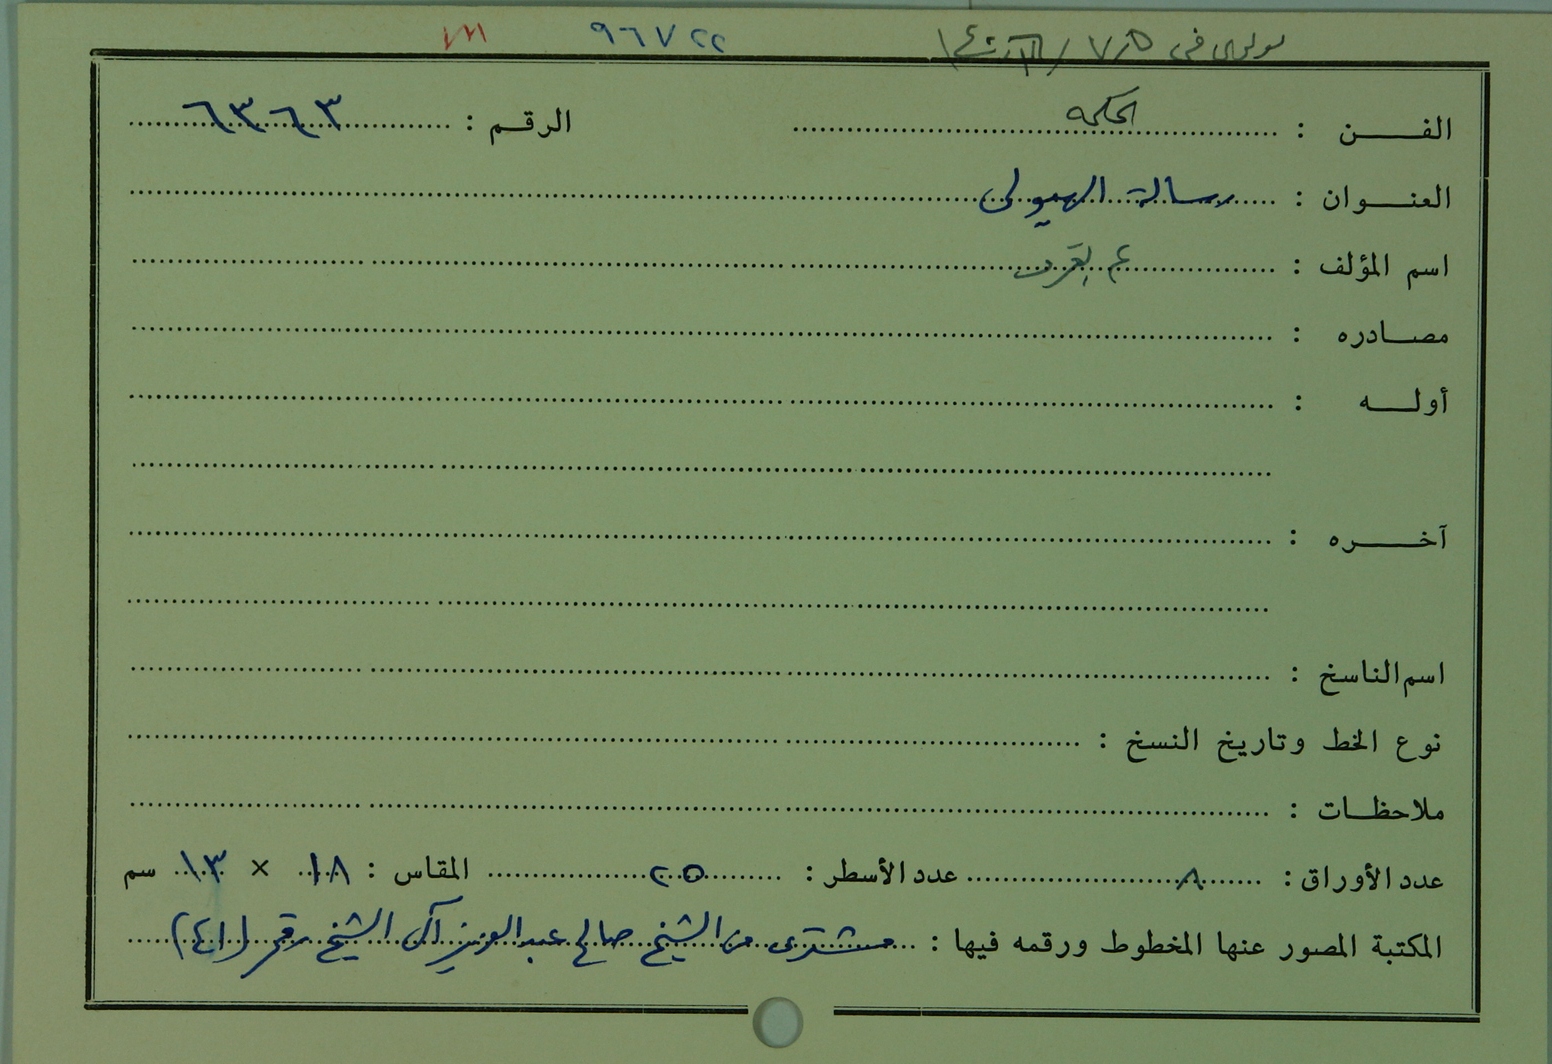 ٩٦٧٢٢
الفن : الحكمه الرقم : ٦٣٦٣
العنوان : رسالة الهيولى
اسم المؤلف : لم يعرف
مصادره :
أوله :
آخره :
اسم الناسخ :
نوع الخط وتاريخ النسخ :
ملاحظات :
عدد الأوراق : ٨ عدد الأسطر : ٢٥ المقاس : ١٨ × ١٣ سم
المكتبة المصور عنها المخطوط ورقمه فيها : مشترى من الشيخ صالح عبد العزيز آل الشيخ رقم (٤١)